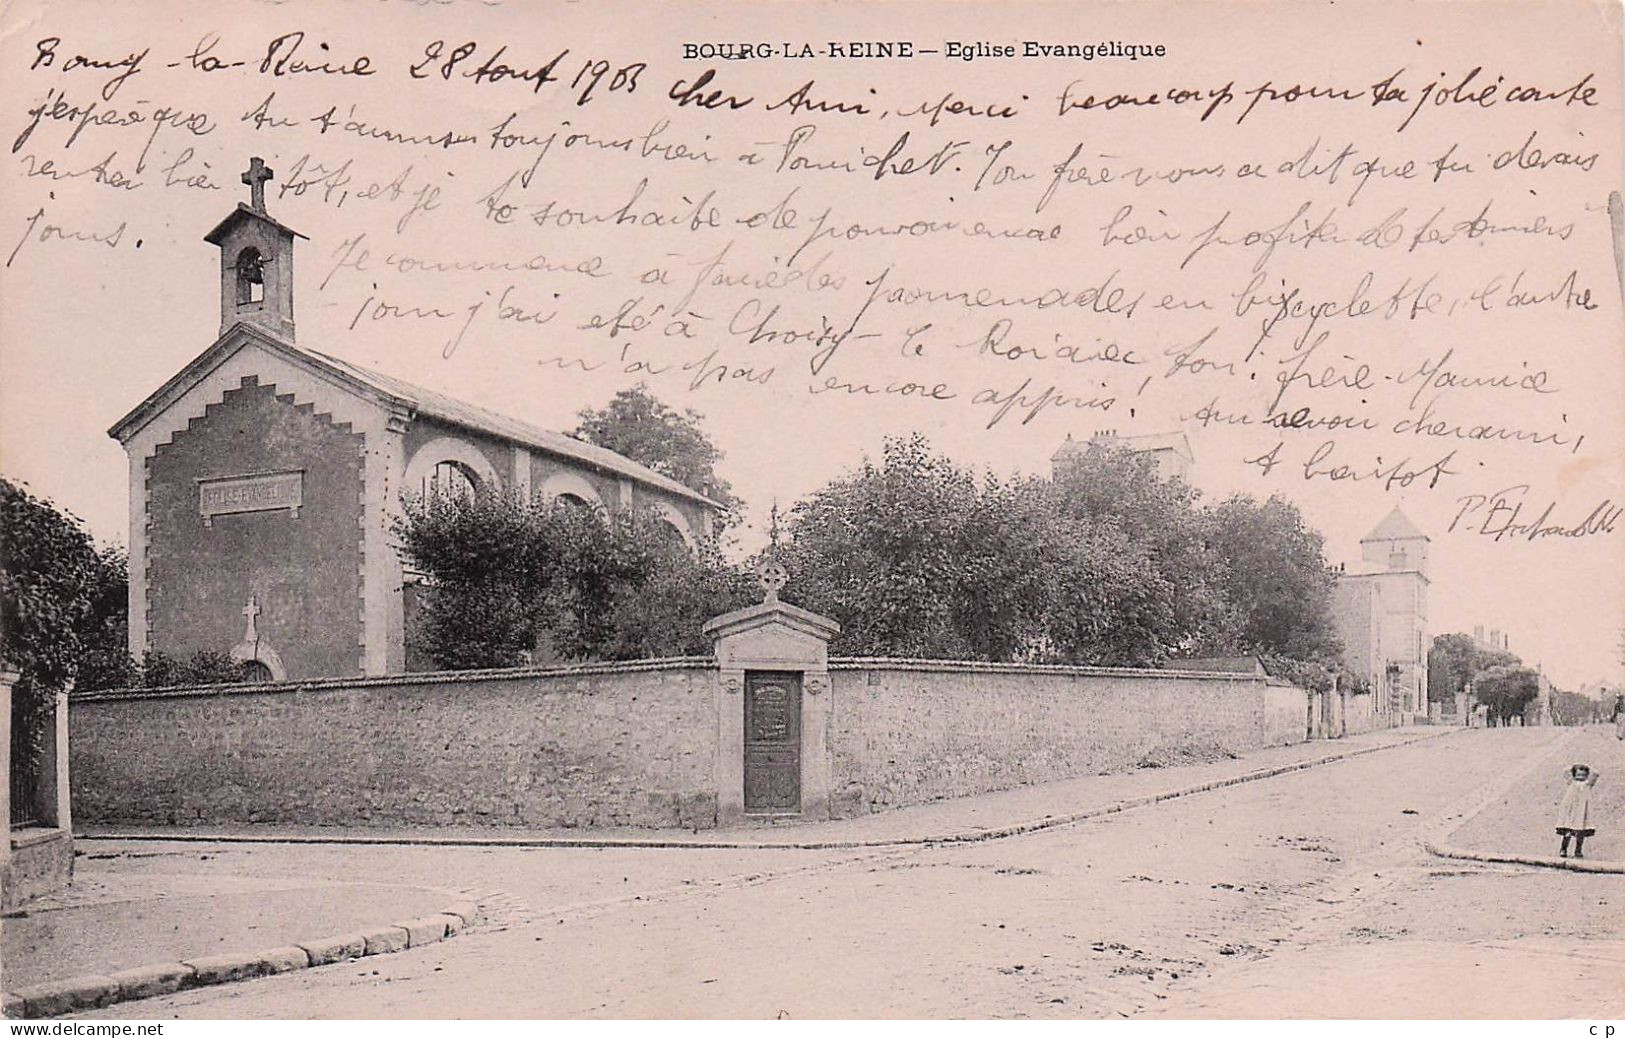 BOURG-LA-REINE — Eglise Evangélique
Bourg-la-Reine 28 Aout 1903 Cher Ami, Merci beaucoup pour ta jolie carte
j'espère que tu t'amuses toujours bien à Pornichet. Ton frère nous a dit que tu devais
rentrer bien tôt, et je te souhaite de pouvoir encore bien profiter de tes derniers
jours.
Je commence à faire des promenades en bicyclette, l'autre
jour j'ai été à Choisy-le Roi avec ton frère. Maurice
n'a pas encore appris! Au revoir cher ami,
A bientôt
P.
EGLISE EVANGELIQUE
www.delcampe.net
c p